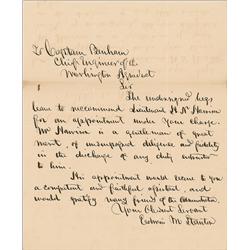 To Captain Benham
Chief Engineer of the
Washington Aqueduct
Sir
The undersigned begs
leave to recommend Lieutenant H. N. Harrison
for an appointment under your charge.
Mr Harrison is a gentleman of great
merit, of unsurpassed diligence and fidelity
in the discharge of any duty entrusted
to him.
An appointment would secure to you
a competent and faithful assistant, and
would gratify many friends of the
Your Obedient Servant
Edwin M Stanton